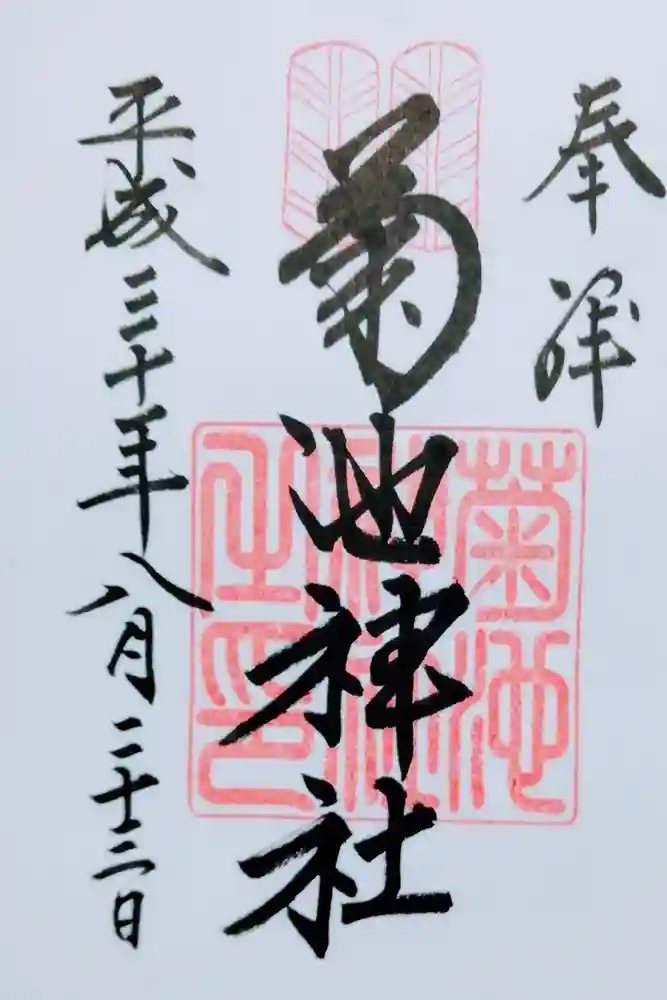 奉拝
菊池神社
菊池
神社
之印
平成三十年八月二十三日